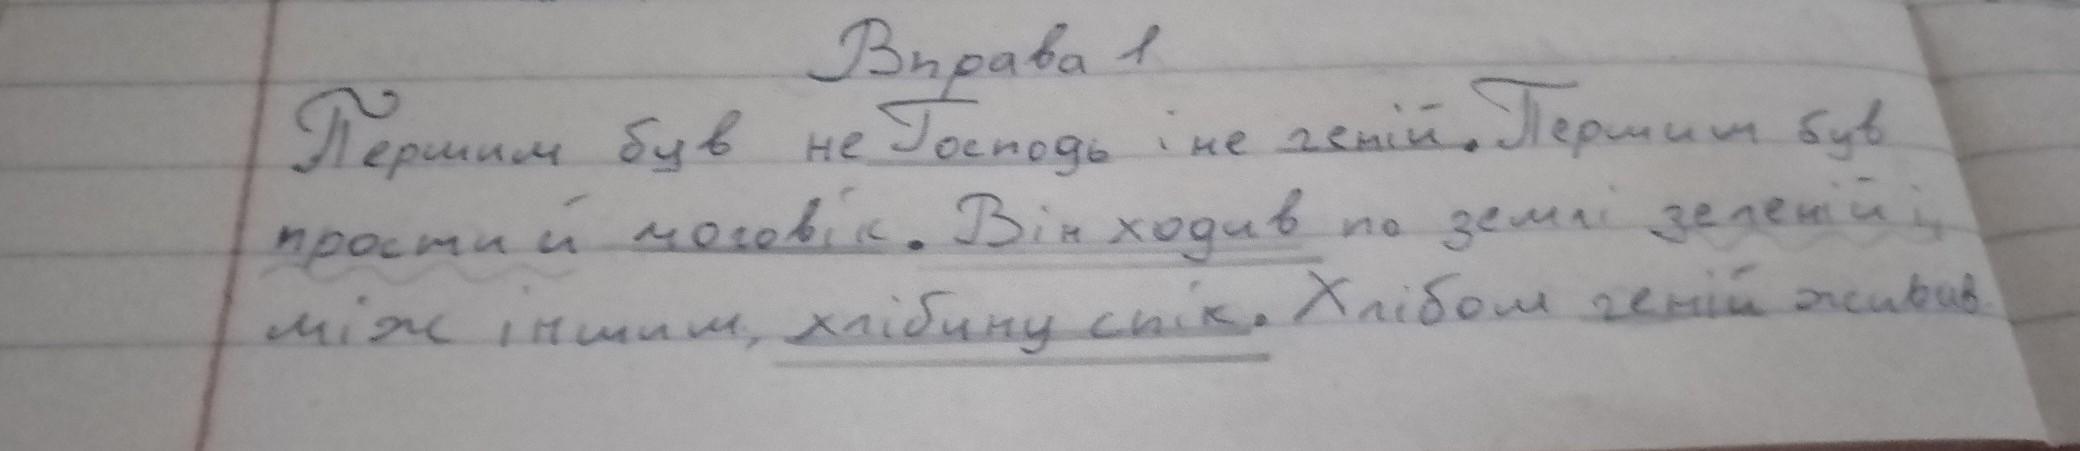 Вправа 1
Першим був не Господь і не геній. Першим був
простий чоловік. Він ходив по землі зеленій і,
між іншим, хлібину спік. Хлібом геній живив